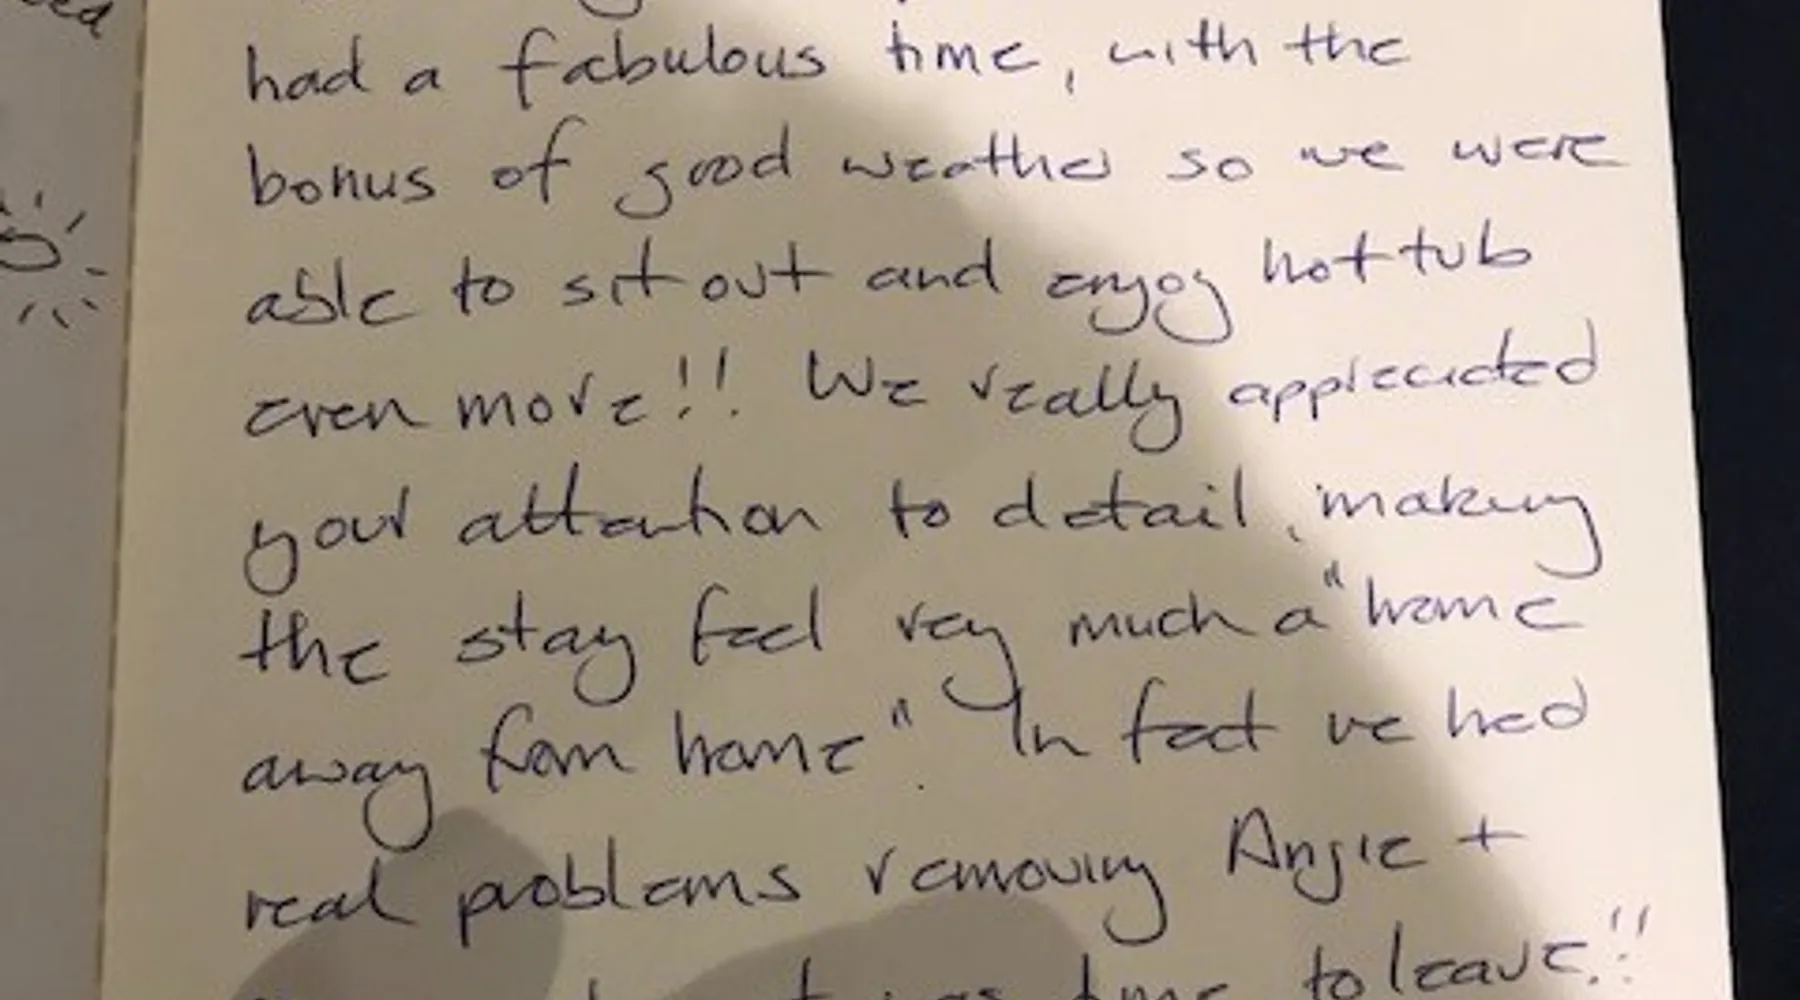 had a fabulous time, with the
bonus of good weather so we were
able to sit out and enjoy hot tub
even more!! We really appreciated
your attention to detail, making
the stay feel very much a "home
away from home". In fact we had
real problems removing Angie +
time to leave!!